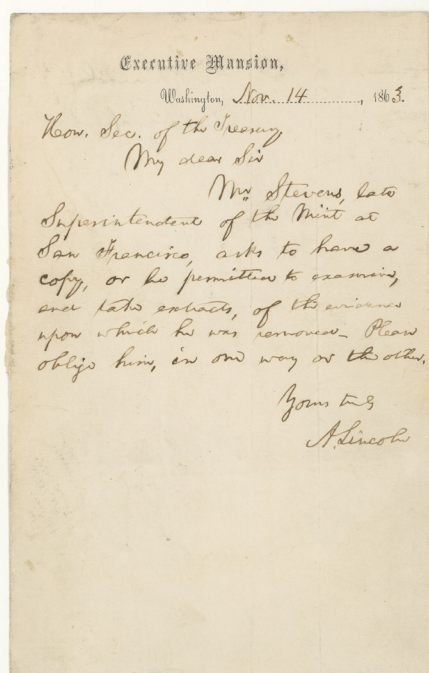 Executive Mansion,
Washington, Nov. 14, 1863.
Hon. Sec. of the Treasury
My dear Sir
Mr. Stevens, late
Superintendent of the Mint at
San Francisco, asks to have a
copy, or be permitted to examine,
and take extracts, of the evidence
upon which he was removed— Please
oblige him, in one way or the other.
Yours truly
A. Lincoln